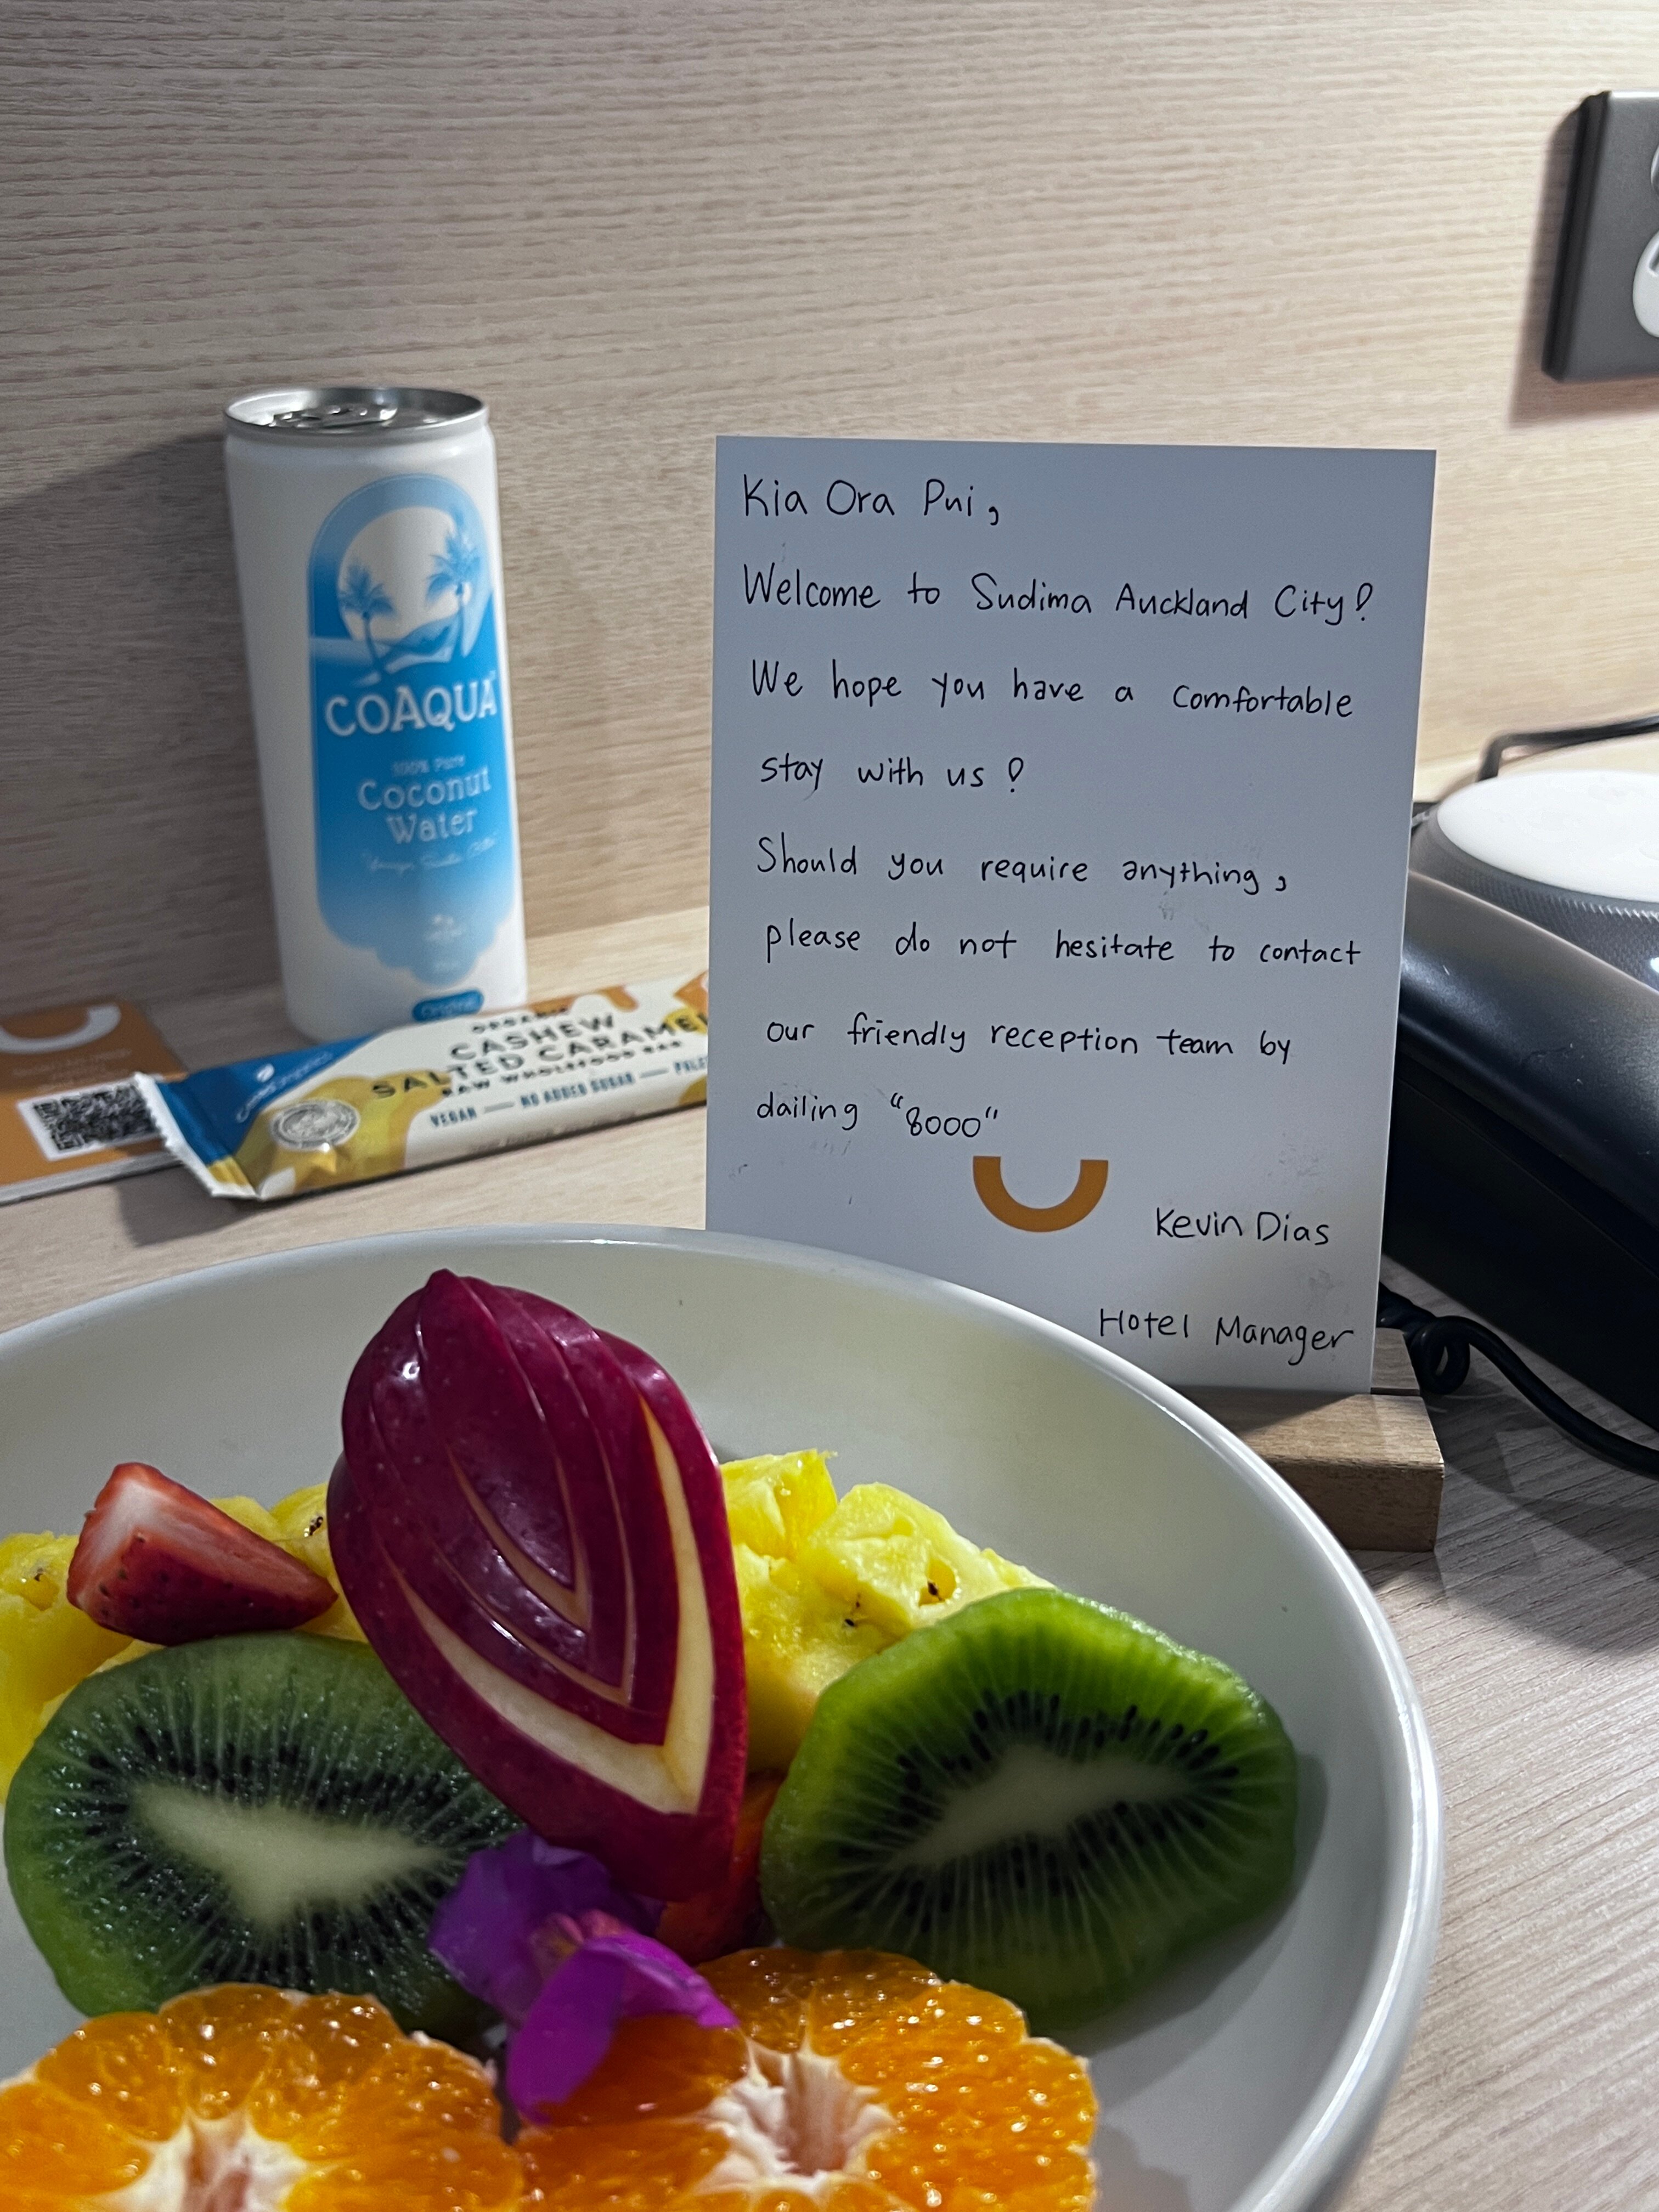 COAQUA
100% Pure
Coconut
Water
Original
ORGANIC
CASHEW
SALTED CARAMEL
RAW WHOLEFOOD BAR
VEGAN — NO ADDED SUGAR —
Kia Ora Pui,
Welcome to Sudima Auckland City!
We hope you have a comfortable
stay with us !
Should you require anything,
please do not hesitate to contact
our friendly reception team by
dailing "8000"
Kevin Dias
Hotel Manager